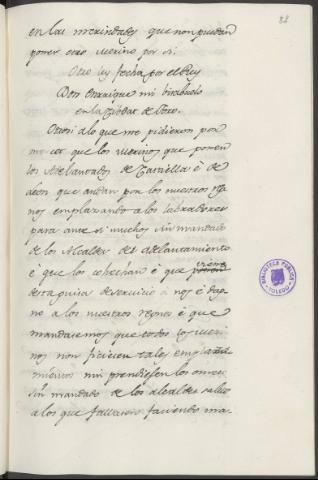 88
en las merindades que non puedan
poner otro Merino por si:
Otro ley fecha por el Rey
Don Enrrique mi bisabuelo
en la Ziodat de Toro.
Otrosi a lo que me pidieron por
mercet que los Merinos que ponen
los Adelantados de Castiella è de
Leon que andan por los nuestros Reg-
nos emplazando a los labradores
para ante si muchos sin mandado
de los Alcaldes del adelantamiento
è que los cohechan è que
desta guisa deservicio a nos è dag-
no a los nuestros regnos è que
mandasemos que todos los meri-
nos non ficiesen tales emplaza-
mientos nin prendiesen los omes
sin mandado de los alcaldes salvo
a los que fallasen faciendo ma-
BIBLIOTECA PUBLICA
TOLEDO